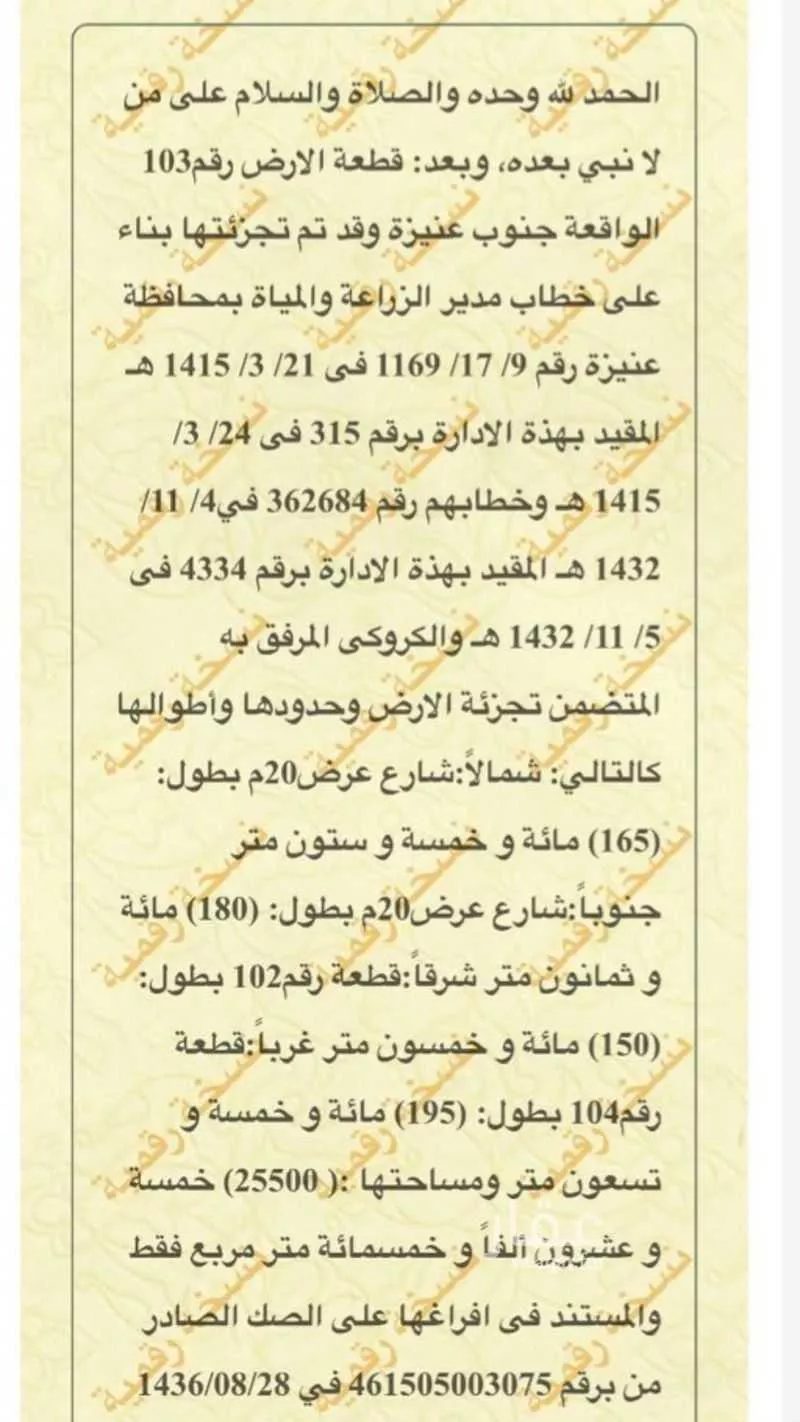 الحمد لله وحده والصلاة والسلام على من
لا نبي بعده، وبعد: قطعة الارض رقم103
الواقعة جنوب عنيزة وقد تم تجزئتها بناء
على خطاب مدير الزراعة والمياة بمحافظة
عنيزة رقم 9/ 17/ 1169 فى 21/ 3/ 1415 هـ
المقيد بهذة الادارة برقم 315 فى 24/ 3/
1415 هـ وخطابهم رقم 362684 في4/ 11/
1432 هـ المقيد بهذة الادارة برقم 4334 فى
5/ 11/ 1432 هـ والكروكى المرفق به
المتضمن تجزئة الارض وحدودها وأطوالها
كالتالي: شمالاً:شارع عرض20م بطول:
(165) مائة و خمسة و ستون متر
جنوباً:شارع عرض20م بطول: (180) مائة
و ثمانون متر شرقاً:قطعة رقم102 بطول:
(150) مائة و خمسون متر غرباً:قطعة
رقم104 بطول: (195) مائة و خمسة و
تسعون متر ومساحتها :( 25500) خمسة
و عشرون ألفاً و خمسمائة متر مربع فقط
والمستند فى افراغها على الصك الصادر
من برقم 461505003075 في 1436/08/28
نسخة رقمية
عقار